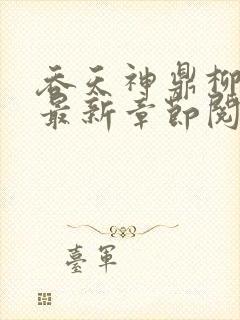 吞天神鼎柳
最新章節閱
臺軍